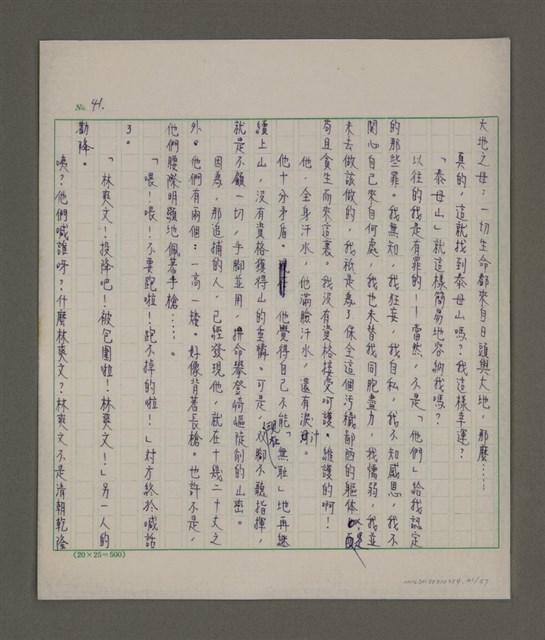 No. 41.
大地之母；一切生命都來自日頭與大地，那麼……
真的，這就找到泰母山嗎？我這樣幸運？
「泰母山」就這樣簡易地容納我嗎？
以往的我是有罪的！——當然，不是「他們」給我認定
的那些罪。我無知，我狂妄，我自私，我不知感恩，我不
關心自己來自何處，我也未替我同胞盡力，我懦弱，我並
未去做該做的，我祇是為了保全這個污穢卑陋的軀體
苟且貪生而來這裏。我沒有資格接受呵護。維護的啊！
他，全身汗水，他滿臉汗水，還有淚汁。
他十分矛盾。他覺得自己不能「無恥」地再繼
續上山，沒有資格獲得山的垂憐。可是，現在雙腳不聽指揮，
就是不顧一切，手腳並用，拼命攀登崎嶇陡削的山巒。
因為，那追捕的人，已經發現他，就在十幾二十丈之
外。他們有兩個：一高一矮。好像背著長槍。也許不是，
他們腰際明顯地佩著手槍……。
「喂！喂！不要跑啦！跑不掉的啦！」對方終於喊話
了。
「林爽文！投降吧！被包圍啦！林爽文！」另一人的
勸降。
咦？他們喊誰呀？什麼林爽文？林爽文不是清朝乾隆
(20×25=500)